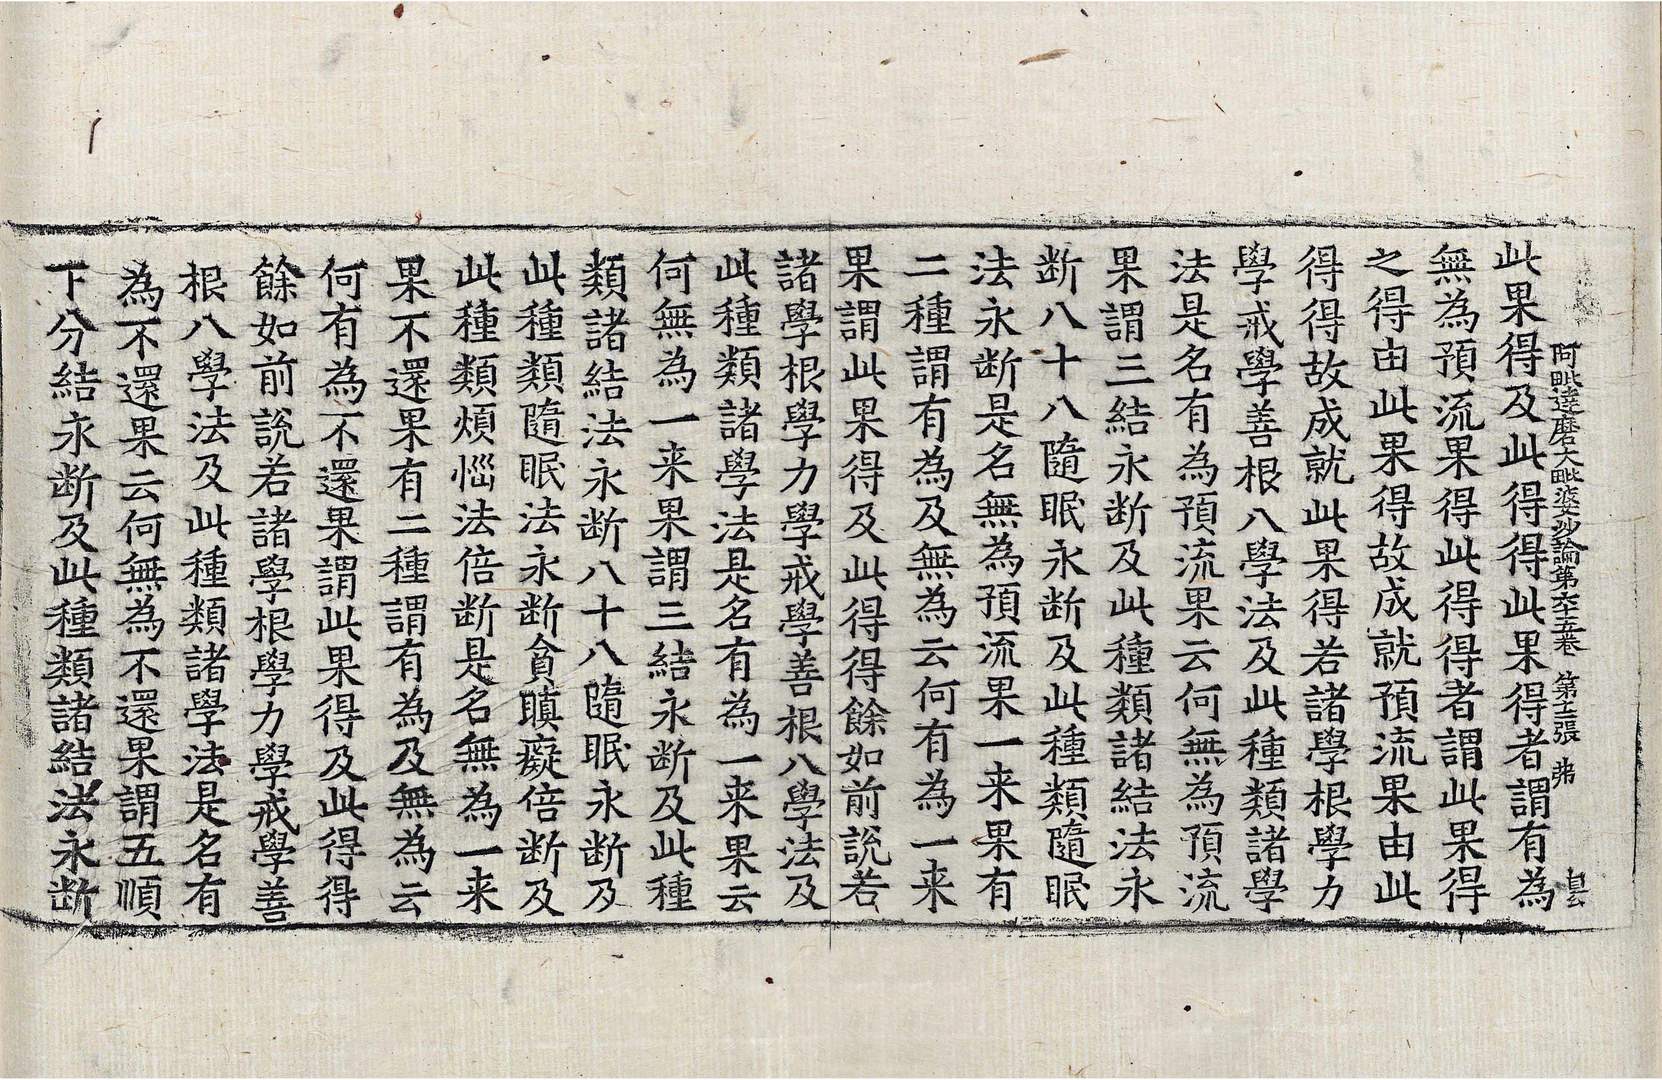 阿毗達磨大毗婆沙論第六十五卷　第十二張　弗
此果得及此得得此果得者謂有為
無為預流果得此得得者謂此果得
之得由此果得故成就預流果由此
得得故成就此果得若諸學根學力
學戒學善根八學法及此種類諸學
法是名有為預流果云何無為預流
果謂三結永断及此種類諸結法永
断八十八隨眠永断及此種類隨眠
法永断是名無為預流果一来果有
二種謂有為及無為云何有為一来
果謂此果得及此得得餘如前說若
諸學根學力學戒學善根八學法及
此種類諸學法是名有為一来果云
何無為一来果謂三結永断及此種
類諸結法永断八十八隨眠永断及
此種類隨眠法永断貪瞋癡倍断及
此種類煩惱法倍断是名無為一来
果不還果有二種謂有為及無為云
何有為不還果謂此果得及此得得
餘如前說若諸學根學力學戒學善
根八學法及此種類諸學法是名有
為不還果云何無為不還果謂五順
下分結永断及此種類諸結法永断